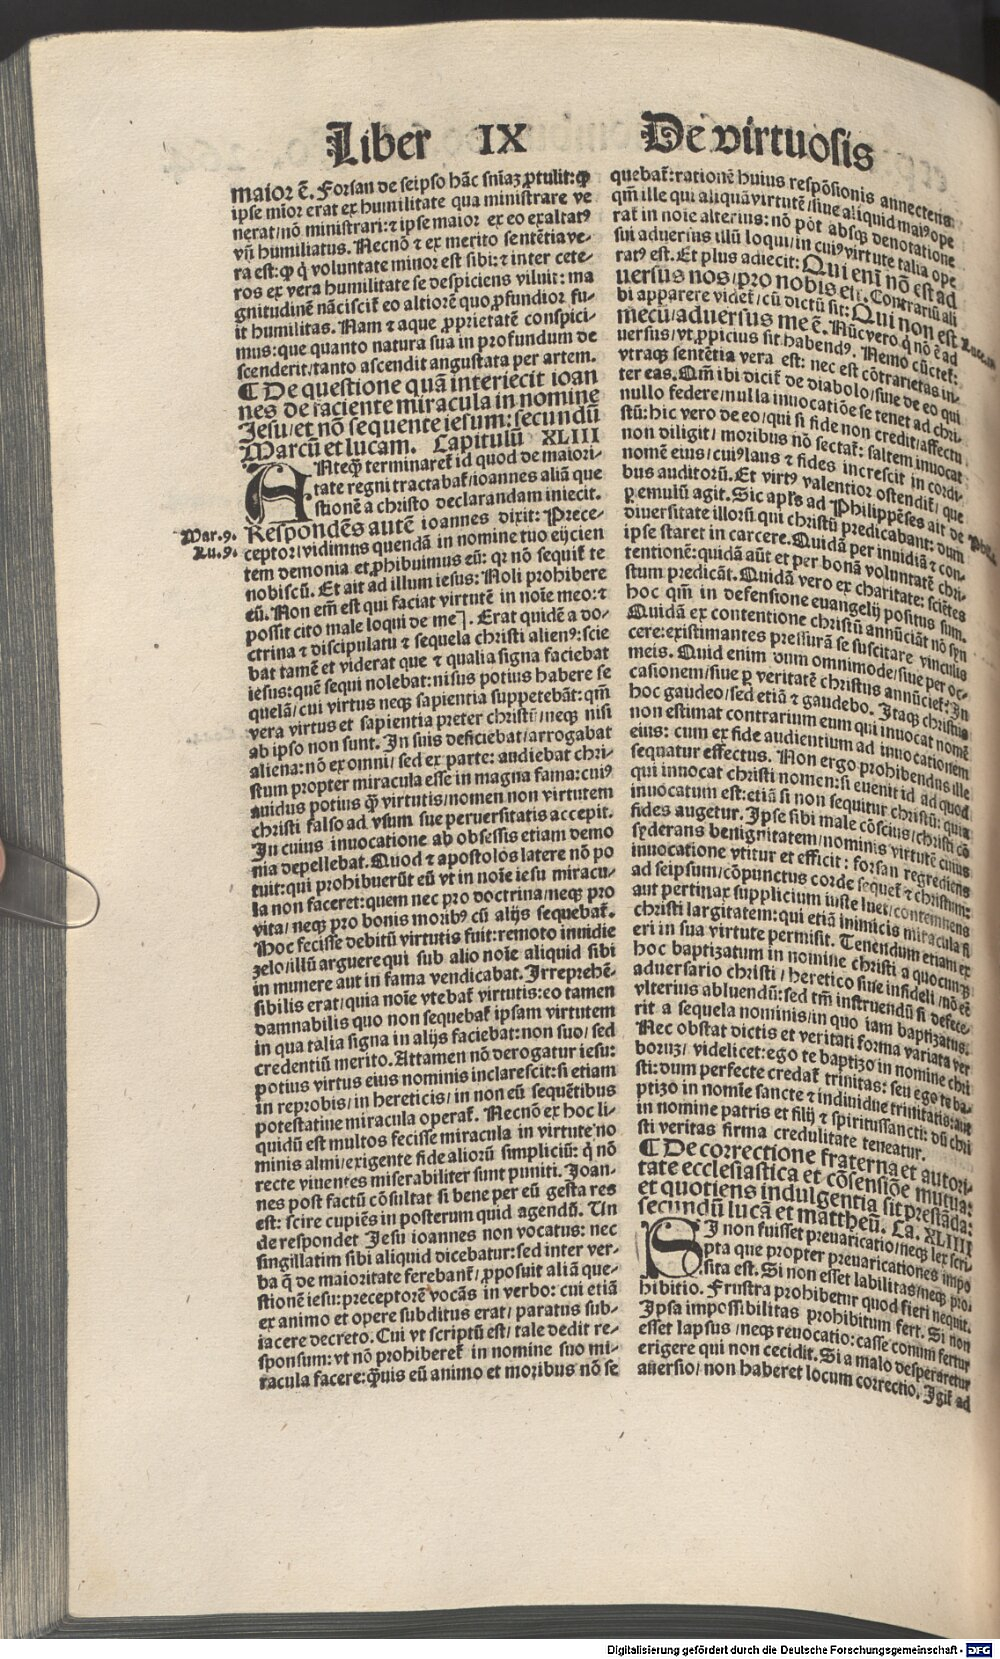 Liber IX De virtuosis
maior ē. Forsan de seipso hāc sn̄iaꝫ ꝓtulit: ꝙ
ipse mīor erat ex humilitate qua ministrare ve
nerat/nō ministrari: ⁊ ipse maior ex eo exaltatꝰ
vn̄ humiliatus. Necnō ⁊ ex merito sentētia ve-
ra est: ꝙ q̇ voluntate minor est sibi: ⁊ inter cete-
ros ex vera humilitate se despiciens viluit: ma
gnitudinē nāciscit᷑ eo altiorē quo ꝓfundior fu-
it humilitas. Nam ⁊ aque ꝓprietatē conspici-
mus: que quanto natura sua in profundum de
scenderit/tanto ascendit angustata per artem.
¶ De questione quā interiecit ioan
nes de faciente miracula in nomine
Jesu/et nō sequente iesum: secundū
Marcū et lucam. Capitulū XLIII
ANteꝙ̄ terminaret᷑ id quod de maiori-
tate regni tractabat᷑/ioannes aliā que
stionē a christo declarandam iniecit.
Mar.9. Respondēs autē ioannes dixit: Prece-
Lu.9. ceptor/vidimus quendā in nomine tuo eijcien
tem demonia et ꝓhibuimus eū: qr nō sequit᷑ te
nobiscū. Et ait ad illum iesus: Noli prohibere
eū. Non em̄ est qui faciat virtutē in noīe meo: ⁊
possit cito male loqui de me]. Erat quidē a do-
ctrina ⁊ discipulatu ⁊ sequela christi alienꝰ: scie
bat tamē et viderat que ⁊ qualia signa faciebat
iesus: quē sequi nolebat: nisus potius habere se
quelā/cui virtus neqꝫ sapientia suppetebāt: qm̄
vera virtus et sapientia preter christū/neqꝫ nisi
ab ipso non sunt. In suis deficiebat/arrogabat
aliena: nō ex omni/sed ex parte: audiebat chri-
stum propter miracula esse in magna fama: cuiꝰ
auidus potius ꝙ̄ virtutis/nomen non virtutem
christi falso ad vsum sue peruersitatis accepit.
In cuius inuocatione ab obsessis etiam demo
nia depellebat. Quod ⁊ apostolos latere nō po
tuit: qui prohibuerūt eū vt in noīe iesu miracu-
la non faceret: quem nec pro doctrina/neqꝫ pro
vita/neqꝫ pro bonis moribꝰ cū alijs sequebat᷑.
Hoc fecisse debitū virtutis fuit: remoto inuidie
zelo/illū arguere qui sub alio noīe aliquid sibi
in munere aut in fama vendicabat. Irreprehē-
sibilis erat/quia noīe vtebat᷑ virtutis: eo tamen
damnabilis quo non sequebat᷑ ipsam virtutem
in qua talia signa in alijs faciebat: non suo/sed
credentiū merito. Attamen nō derogatur iesu:
potius virtus eius nominis inclarescit: si etiam
in reprobis/in hereticis/in non eū sequētibus
potestatiue miracula operat᷑. Necnō ex hoc li-
quidū est multos fecisse miracula in virtute no
minis almi/exigente fide aliorū simpliciū: q̇ nō
recte viuentes miserabiliter sunt puniti. Joan-
nes post factū cōsultat si bene per eū gesta res
est: scire cupiēs in posterum quid agendū. Un
de respondet Jesu ioannes non vocatus: nec
singillatim sibi aliquid dicebatur: sed inter ver-
ba q̄ de maioritate ferebant᷑/ꝓposuit aliā que-
stionē iesu: preceptorē vocās in verbo: cui etiā
ex animo et opere subditus erat/paratus sub-
iacere decreto. Cui vt scriptū est/tale dedit re-
sponsum: vt nō prohiberet᷑ in nomine suo mi-
racula facere: ꝙ̄uis eū animo et moribus nō se
quebat᷑: rationē huius respōsionis annectens.
qm̄ ille qui aliquā virtutē/siue aliquid maiꝰ ope
rat᷑ in noīe alterius: nō pōt absqꝫ denotatione
sui aduersus illū loqui/in cuiꝰ virtute talia ope
ratꝰ est. Et plus adiecit: Qui enī nō est ad
uersus nos/pro nobis est. Contrariū ali
bi apparere videt᷑/cū dictū sit: Qui non est
mecū/aduersus me ē. Nūc vero q̇ nō ē ad
uersus/vt ꝓpicius sit habendꝰ. Nemo cūctet᷑:
vtraqꝫ sentētia vera est: nec est cōtrarietas in-
ter eas. Qm̄ ibi dicit᷑ de diabolo/siue de eo qui
nullo federe/nulla inuocatiōe se tenet ad chri-
stū: hic vero de eo/qui si fide non credit/affectu
non diligit/moribus nō sectat᷑: saltem inuocat
nomē eius/cuiꝰ laus ⁊ fides increscit in cordi-
bus auditorū. Et virtꝰ valentior ostendit᷑/que
ꝑ emulū agit. Sic apl̄s ad Philippēses ait de
diuersitate illorū qui christū predicabant: dum
ipse staret in carcere. Quidā per inuidiā ⁊ con-
tentionē: quidā aūt et per bonā voluntatē chri-
stum predicāt. Quidā vero ex charitate: sciētes
hoc qm̄ in defensione euangelij positus sum.
Quidā ex contentione christū annūciāt nō syn
cere: existimantes pressurā se suscitare vinculis
meis. Quid enim dum omnimode/siue per oc-
casionem/siue ꝑ veritatē christus annūciet᷑: In
hoc gaudeo/sed etiā ⁊ gaudebo. Itaqꝫ christus
non estimat contrarium eum qui inuocat nomē
eius: cum ex fide audientium ad inuocationem
sequatur effectus. Non ergo prohibendus ille
qui inuocat christi nomen: si euenit id ad quod
inuocatum est: etiā si non sequitur christū: quia
fides augetur. Ipse sibi male cōscius/christi cō
syderans benignitatem/nominis virtutē cuius
inuocatione vtitur et efficit: forsan regrediens
ad seipsum/cōpunctus corde sequet᷑ ⁊ christum:
aut pertinax supplicium iuste luet/contemnens
christi largitatem: qui etiā inimicis miracula fi
eri in sua virtute permisit. Tenendum etiam ex
hoc baptizatum in nomine christi a quocunqꝫ
aduersario christi/heretico siue infideli/nō eē
vlterius abluendū: sed tm̄ instruendū si defece-
rit a sequela nominis/in quo iam baptizatus.
Nec obstat dictis et veritati forma variata ver
borūꝫ/videlicet: ego te baptizo in nomine chri
sti: dum perfecte credat᷑ trinitas: seu ego te ba-
ptizo in nomīe sancte ⁊ indiuidue trinitatis: aut
in nomine patris et filij ⁊ spiritussancti: dū chri
sti veritas firma credulitate teneatur.
¶ De correctione fraterna et autori-
tate ecclesiastica et cōsensiōe mutua:
et quotiens indulgentia sit prestāda:
secundū lucā et mattheū. Ca. XLIIII
SI non fuisset preuaricatio/neqꝫ lex scri-
pta que propter preuaricationes impo
sita est. Si non esset labilitas/neqꝫ proi
hibitio. Frustra prohibetur quod fieri nequit.
Ipsa impossibilitas prohibitum fert. Si non
esset lapsus/neqꝫ reuocatio: casse conim̄ fertur
erigere qui non cecidit. Si a malo desperaretur
auersio/non haberet locum correctio. Igit᷑ ad